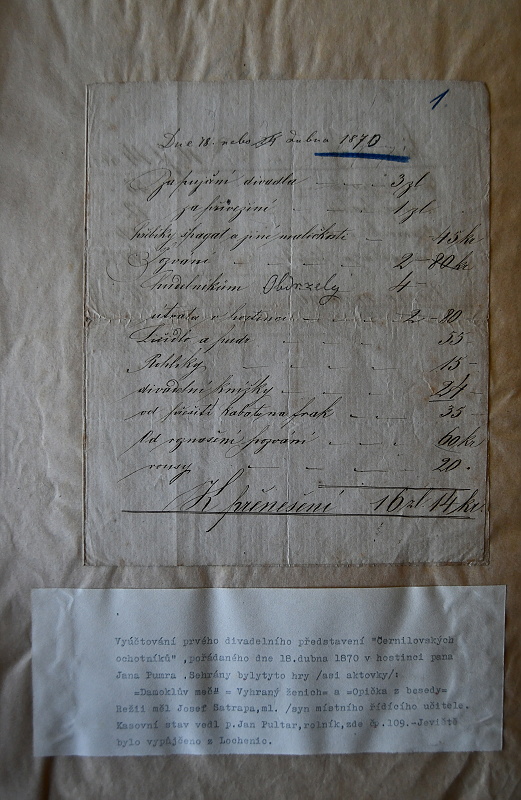 1.
Dne 18. nebo dubna 1870
Za pujčání divadla 3 zl
za přivezení 1 zl
hřebíky špagat a jiné maličkosti 45 kr
Zpváni 2 - 80 kr
hudebníkům Obdrzely 4 -
útrata v hostinci 2 - 80
Líčidlo a pudr 55
Rohlíky 15
divadelní knížky 24
od přešití kabátu na frak 35
Od roznošení pozvání 60 kr
vousy 20.
K přenešení 16 zl 14 kr.
Vyúčtování prvého divadelního představení "Černilovských
ochotníků" ,pořádaného dne 18.dubna 1870 v hostinci pana
Jana Pumra .Sehrány bylytyto hry /asi aktovky/:
=Damoklův meč# = Vyhraný ženich= a =Opička z besedy=
Režii měl Josef Satrapa,ml. /syn místního řídícího učitele.
Kasovní stav vedl p.Jan Pultar,rolník,zde čp.109.-Jeviště
bylo vypůjčeno z Lochenic.